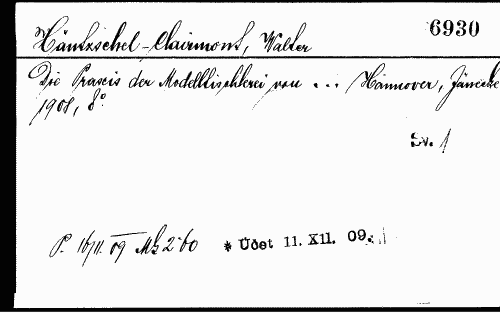 6930
Häntzschel-Clairmont, Walter
Die Praxis der Modelltischlerei von ... Hannover, Jänecke
1908, 8°
Sv. 1
P. 16/11 09 Mk 2·60 * Účet 11. XII. 09.